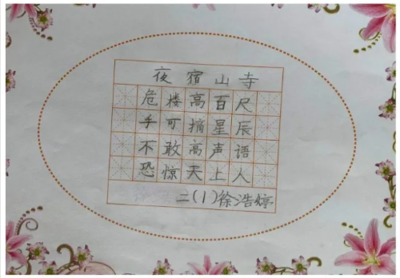 夜宿山寺
危楼高百尺
手可摘星辰
不敢高声语
恐惊天上人
二(1)徐浩婷